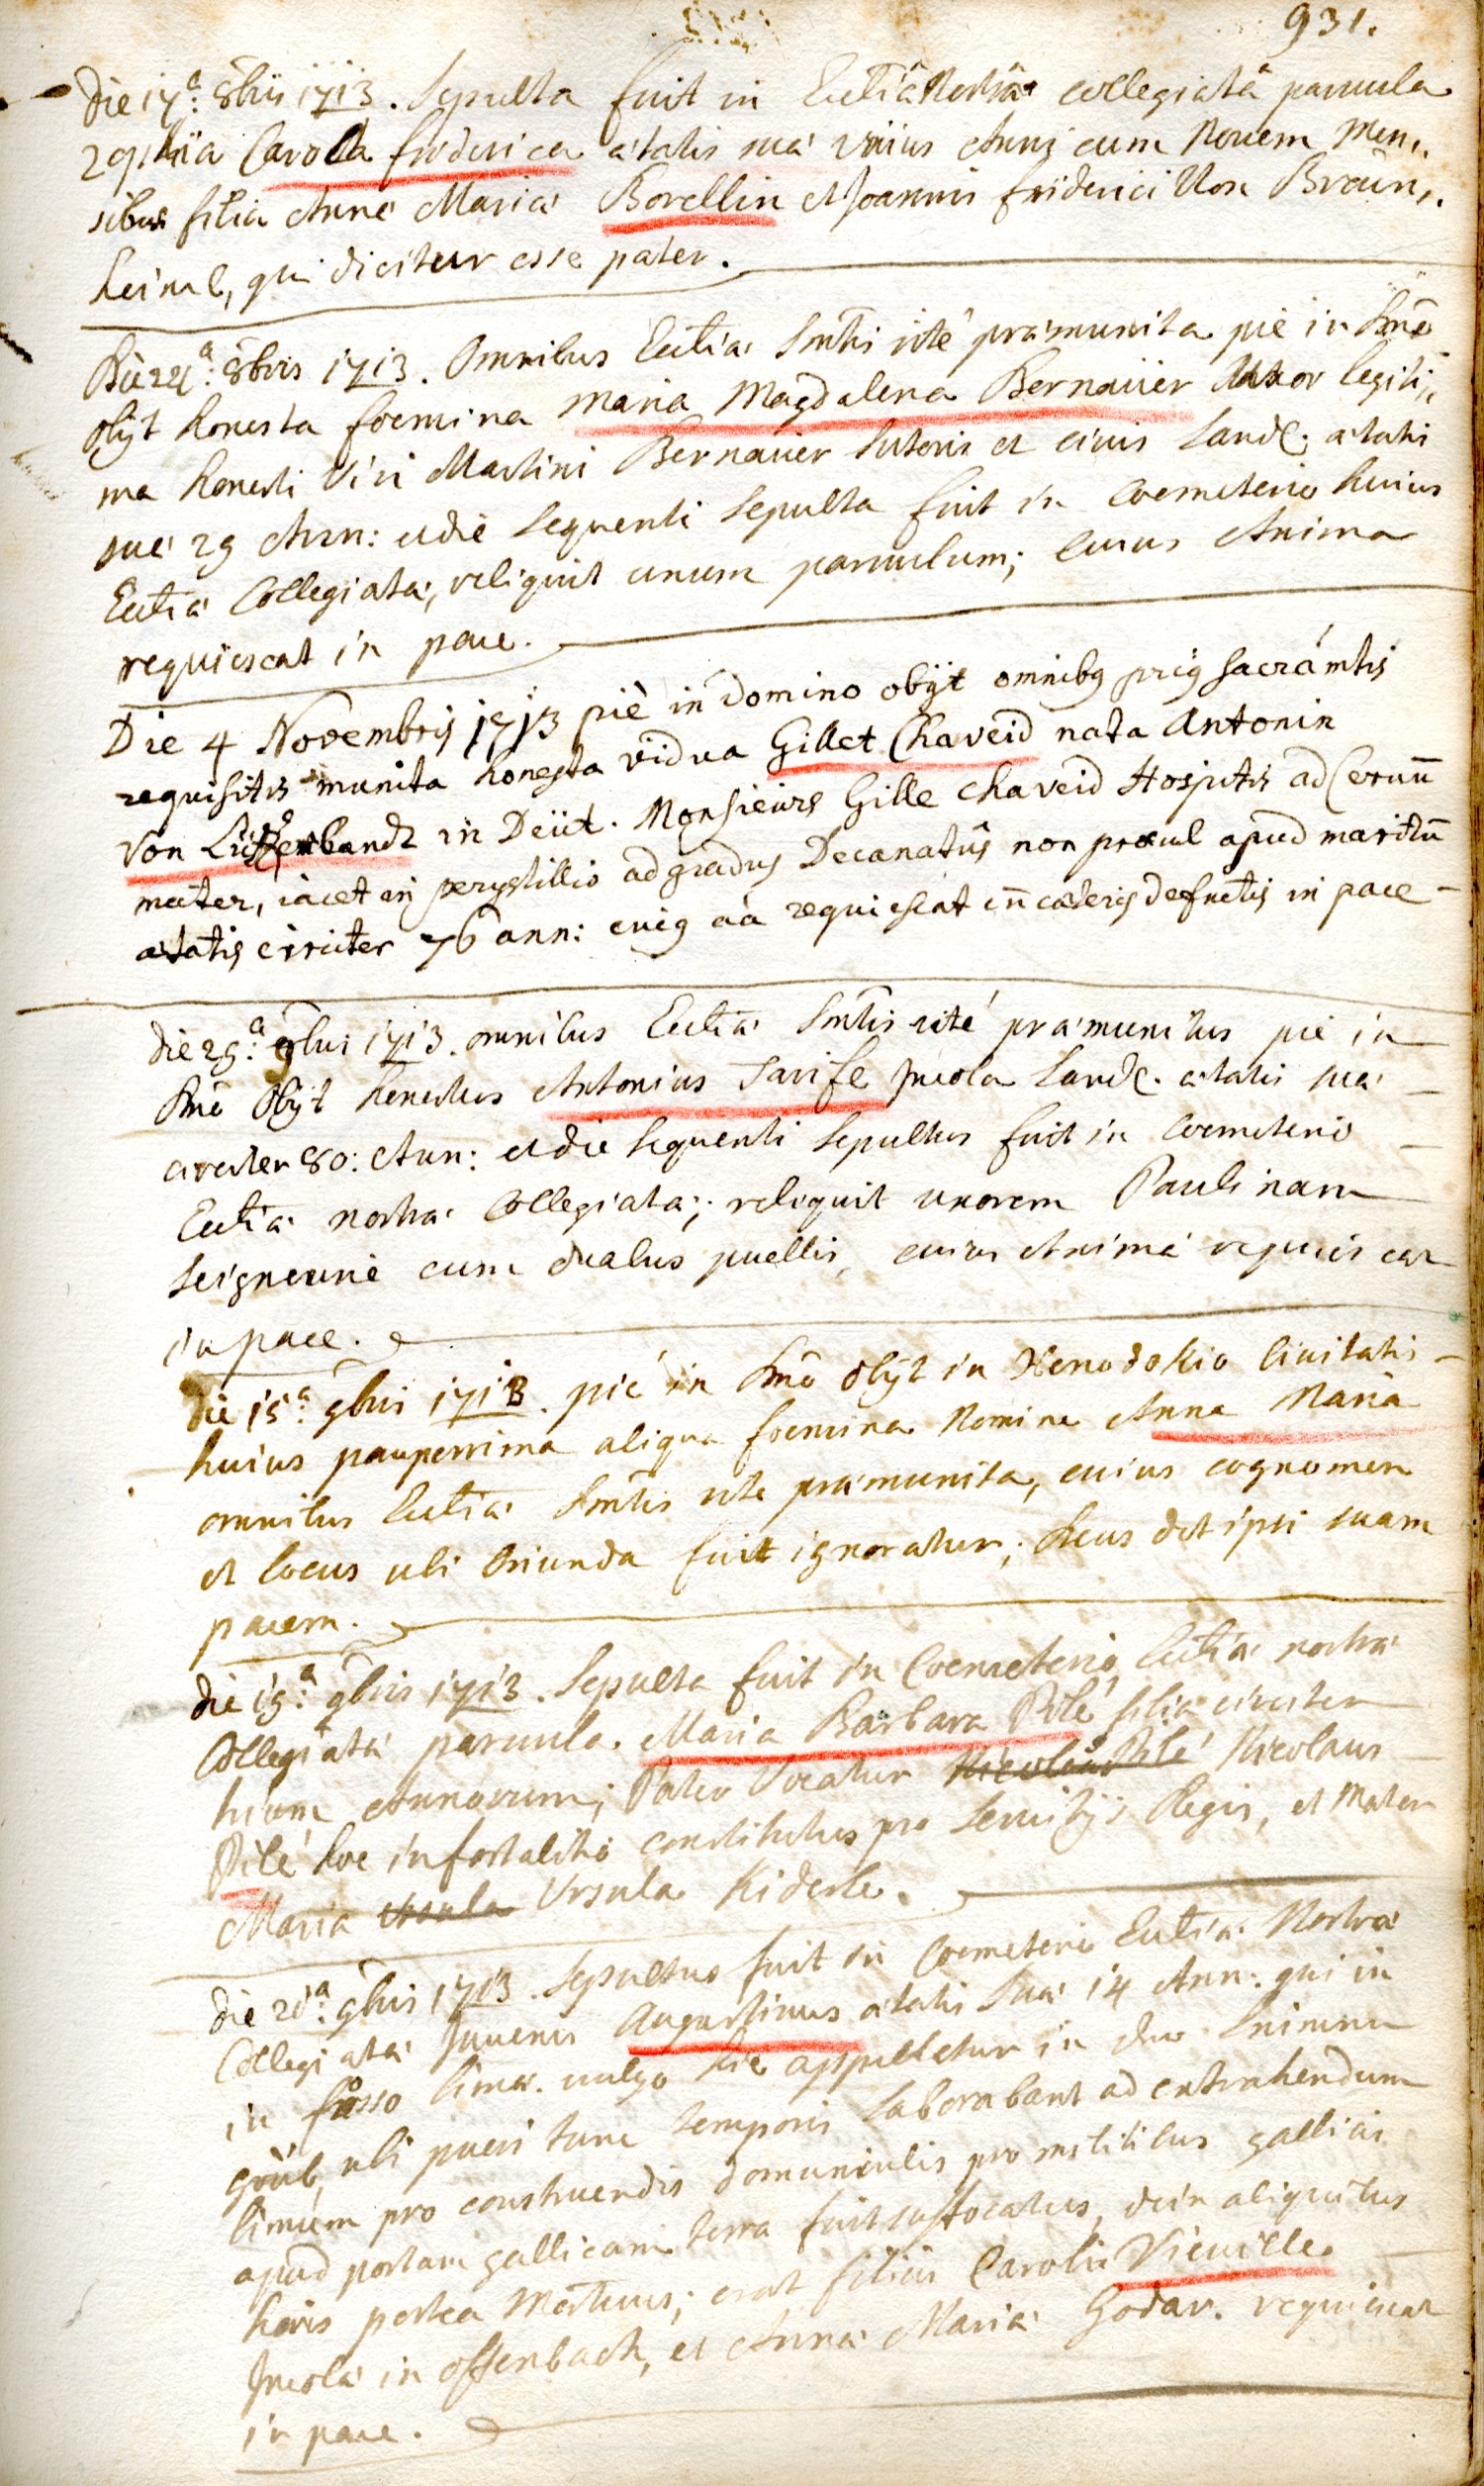 931.
Die 17.a 8bris 1713. Sepulta fuit in Ecclĩa Nostra collegiatâ paruula
Carola friderica ætatis suæ vnius Anni cum Nouem Men„
sibus filia Annæ Mariæ Borellin et Joannis friderici Von Braün„
heimb, qui dicitur esse pater.
Die 24.a 8bris 1713. Omnibus Ecclĩæ Smtis ritè præmunita piè in Dnõ
obijt honesta foemina Maria Magdalena Bernauer Uxor legiti„
ma honesti Viri Martini Bernauer Sutoris et ciuis Land. ætatis
suæ 29 Ann: et die sequenti sepulta fuit in Coemeterio huius
Ecclĩæ Collegiatæ, reliquit unum paruulum; cuius Anima
requiescat in pace.
Die 4 Novembris 1713 piè in Domino obijt omnibq priq sacrámtis
requisitis munita honesta vidua Gillet Chaveid nata Antonin
von in Deüt. Monsieurs Gille Chaveid Hospitis ad Ceruũ
mater, iacet in perystillio ad gradus Decanatûs non procul apud maritũ
ætatis circiter 76 ann: cuiq aa requiescat cũ cæteris defũctis in pace
die 29.a 9bris 1713. omnibus Ecclĩæ Smtis rité præmunitus piè in
Dnõ Obijt honestus Antonius Sarife Incola Land. ætatis suæ
circiter 80: Ann: et die sequenti Sepultus fuit in Coemeterio
Ecclĩæ nostræ Collegiatæ; reliquit uxorem Paulinam
Seigneurie cum duabus puellis, cuius Animæ requiescat
in pace.
die 15.a 9bris 1713. pié in Dnõ obijt in Xenodokio Ciuitatis
huius pauperrima aliqua foemina Nomine Anna Maria
omnibus Ecclĩæ Smtis rite præmunita, cuius cognomen
et locus ubi Oriunda fuit ignoratur; Deus det ipsi suam
pacem.
die 19.a 9bris 1713. Sepulta fuit in Coemeterio Ecclĩæ nostræ
Collegiatæ paruula Maria Barbara Pilé filia circiter
trium Annorum; Pater Vocatur Nicolaus Pilé Nicolaus
Pilé hoc in fortalitio constitutus pro Seruitijs Regis, et Mater
Maria Ursula Vrsula Kiderle.
die 21.a 9bris 1713. Sepultus fuit in Coemeterio Ecclĩæ Nostræ
Collegiatæ Juuenis Augustinus ætatis Suæ 14 Ann. qui in
in fosso limi. uulgo sic appelletur in der
grüb, ubi pueri tunc temporis laborabant ad extrahendum
limum pro construendis domunculis pro militibus gallicis
apud portam gallicam terra fuit suffocatus, dein aliquibus
horis postea Mortuus; erat filius Caroli Vieuille
Incolæ in Offenbach, et Annæ Mariæ Godar. requiescat
in pace.